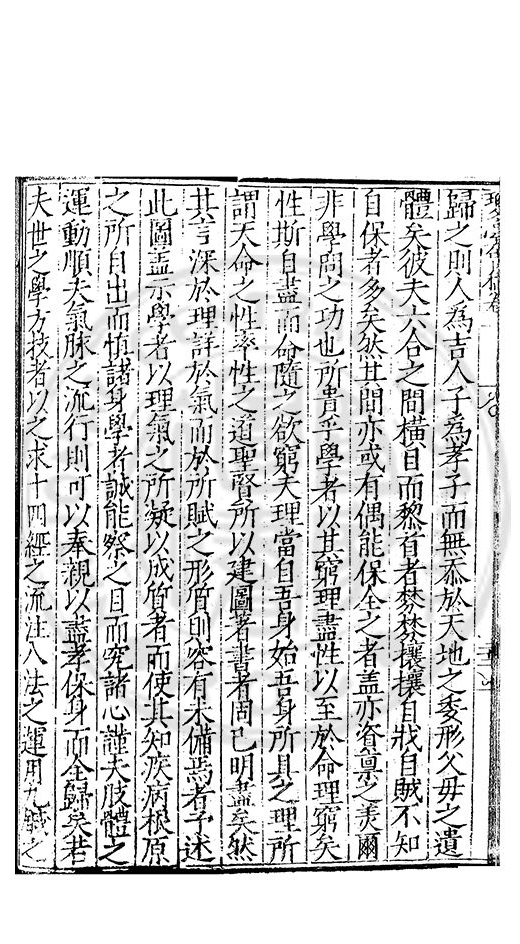 歸之則人為吉人子為孝子而無忝於天地之委形父母之遺
體矣彼夫六合之間橫目而黎首者棼棼攘攘自戕自賊不知
自保者多矣然其間亦或有偶能保全之者蓋亦資稟之美爾
非學問之功也所貴乎學者以其窮理盡性以至於命理窮矣
性斯自盡而命隨之欲窮天理當自吾身始吾身所具之理所
謂天命之性率性之道聖賢所以建圖著書者固已明盡矣然
其言深於理詳於氣而於所賦之形質則容有未備焉者予述
此圖蓋示學者以理氣之所凝以成質者而使其知疾病根原
之所自出而慎諸身學者誠能察之目而究諸心謹夫肢體之
運動順夫氣脉之流行則可以奉親以盡孝保身而全歸矣若
夫世之學方技者以之求十四經之流注八法之運用九鍼之